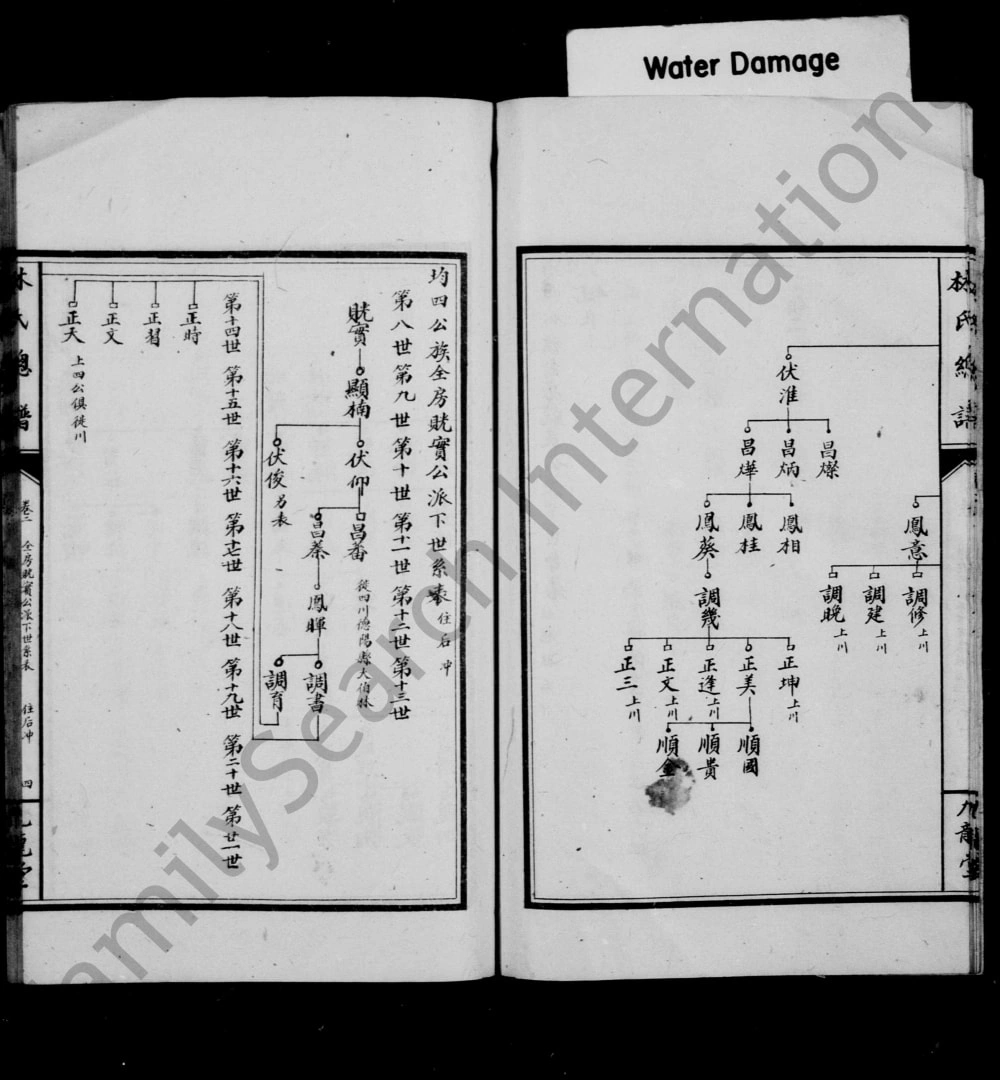 Water Damage
林氏總譜
九龍堂
伏淮
昌燦
昌炳
昌燁
鳳相
鳳桂
鳳葵
鳳意
調修 上川
調建 上川
調晚 上川
調幾
正坤 上川
正美
正逢 上川
正文 上川
正三 上川
順國
順貴
順金
均四公族全房眖實公派下世系表 住后冲
第八世 第九世 第十世 第十一世 第十二世 第十三世
眖實
顯楠
伏仰
伏俊 另表
昌畨 徙四川德陽縣大伯林
昌蔡
鳳暉
調書
調育
第十四世 第十五世 第十六世 第十七世 第十八世 第十九世 第二十世 第廿一世
正時
正習
正文
正天
上四公俱徙川
林氏總譜
卷二 全房眖實公派下世系表 住后冲 四
九龍堂
FamilySearch International